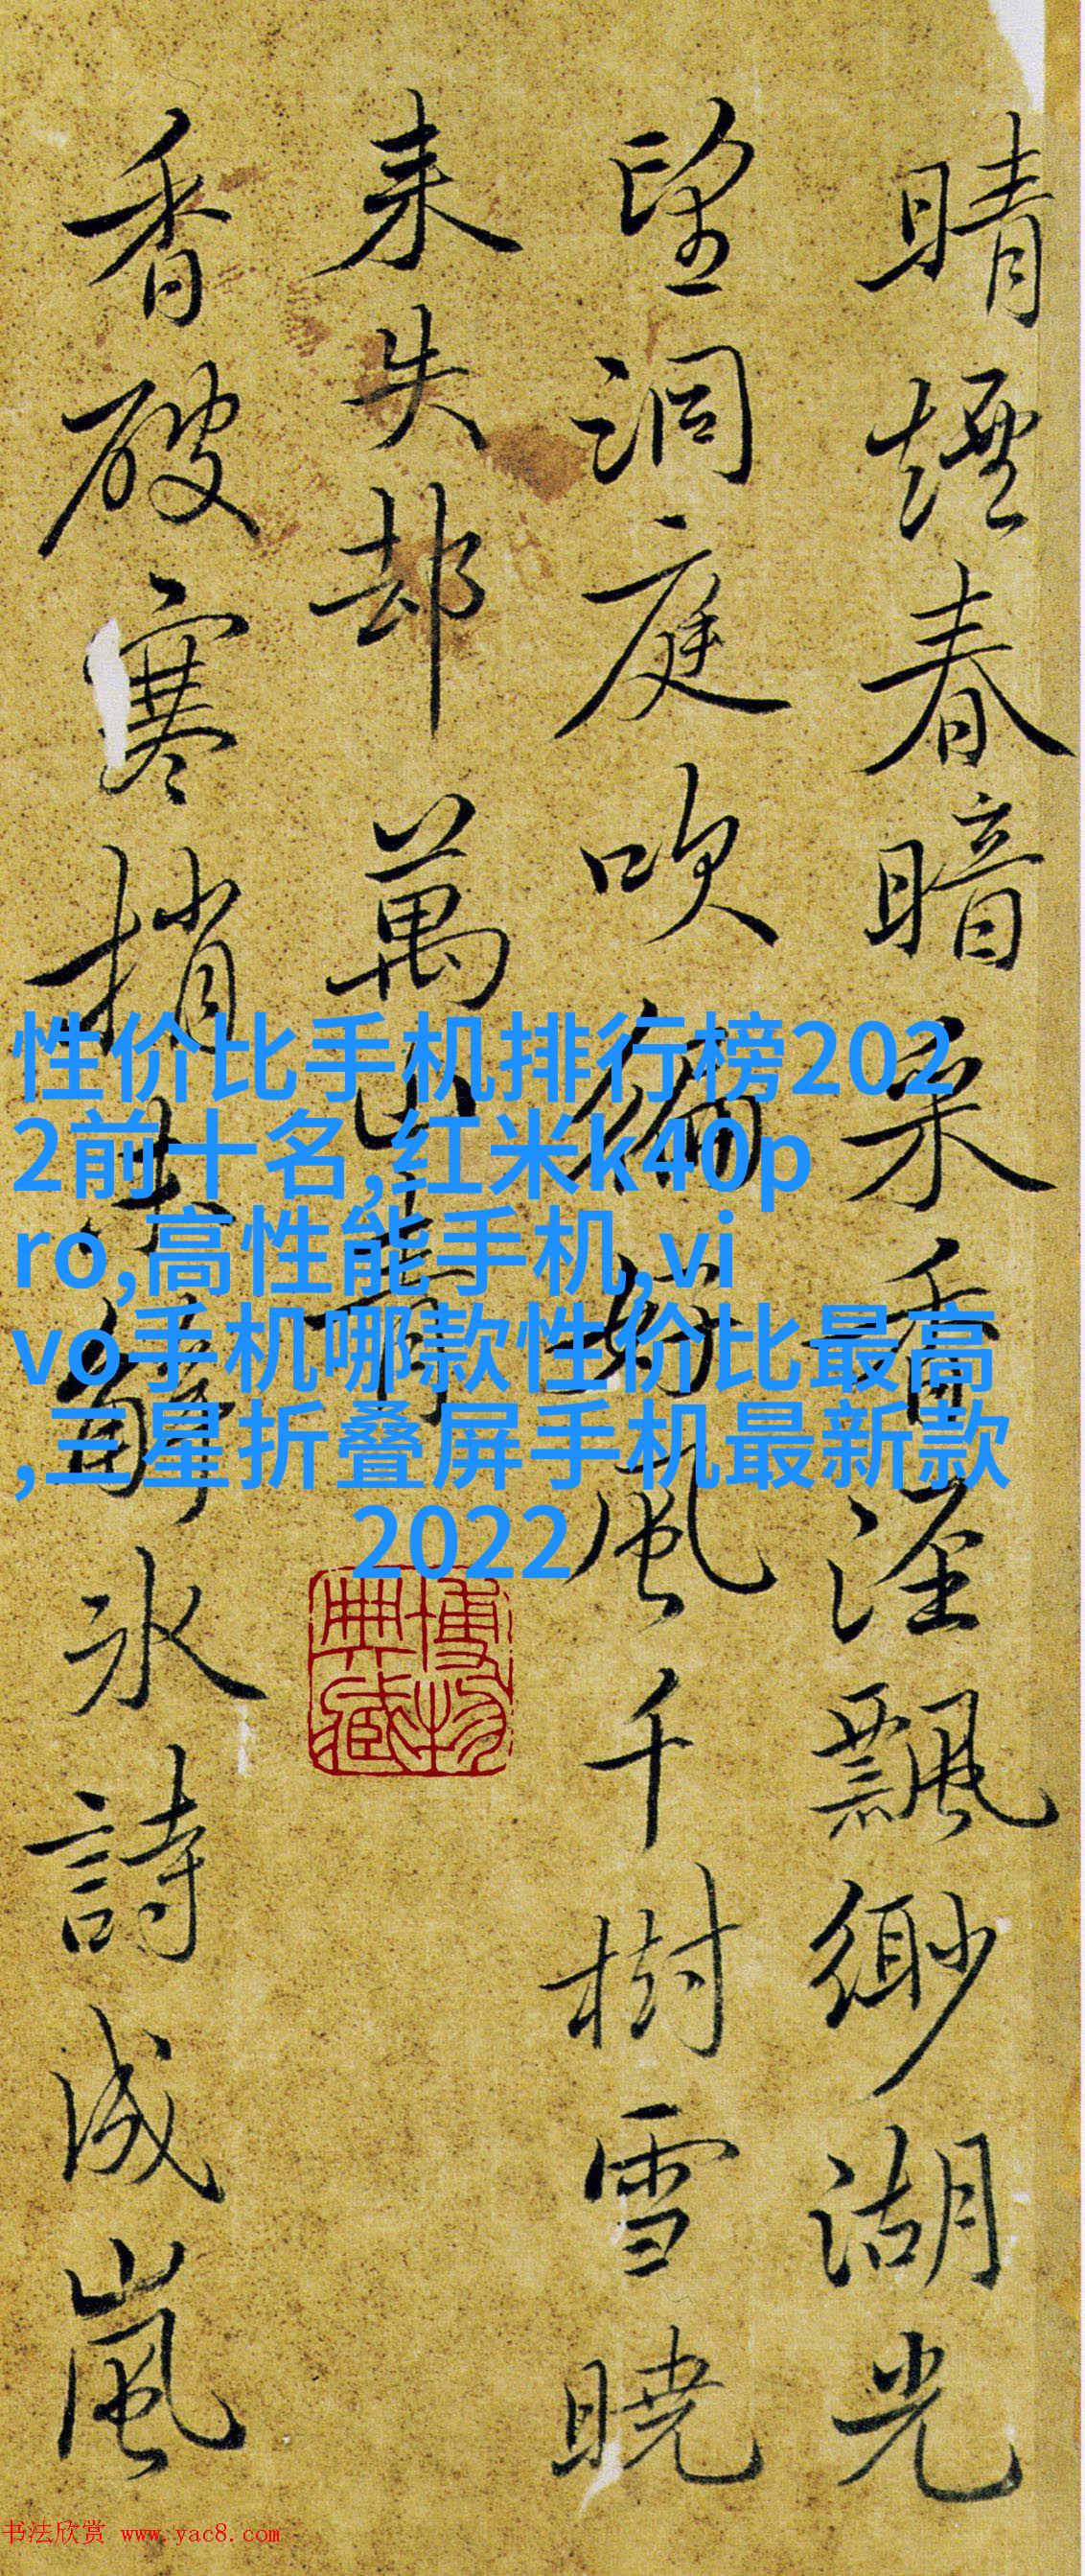 晴煙春暗柔香溼飄緲湖光
望洞庭吹風千樹雪曉
来失却萬山青
香破寒梢氷詩成嵐
性价比手机排行榜202
2前十名,红米k40p
ro,高性能手机,vi
vo手机哪款性价比最高
,三星折叠屏手机最新款
2022
博物
典藏
书法欣赏 www.yac8.com